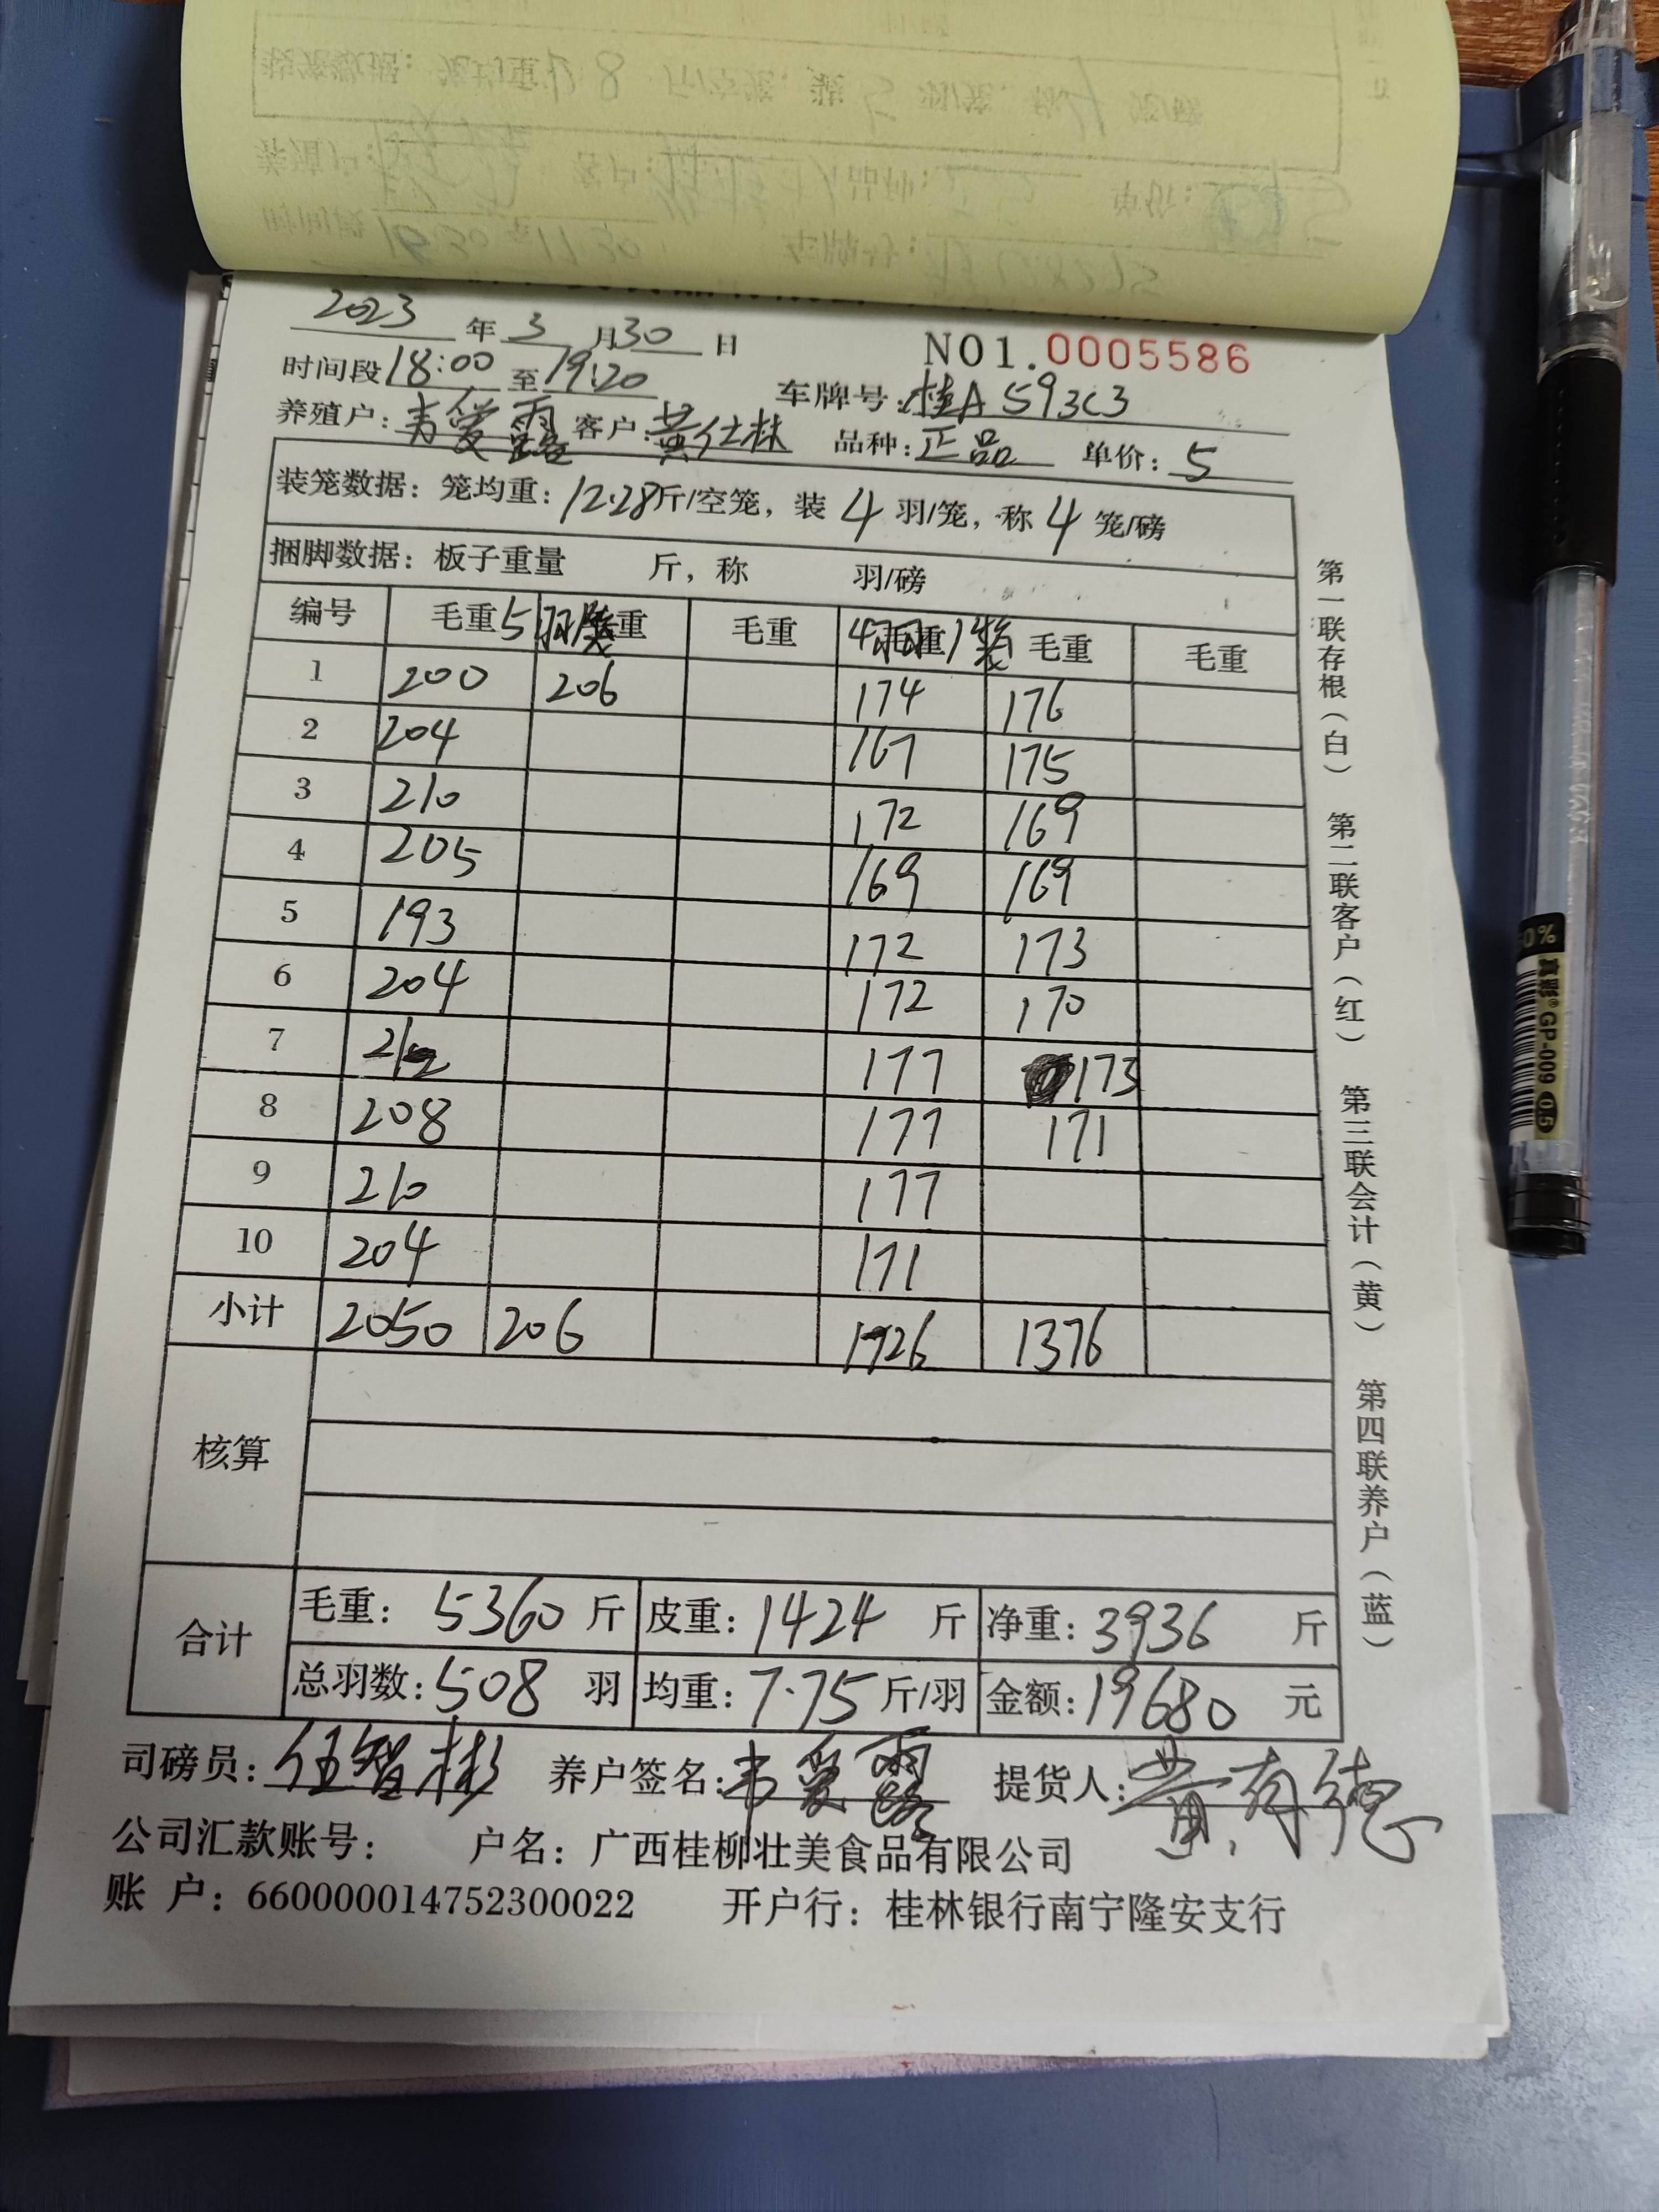 2023 年 3 月 30 日 NO1.0005586
时间段 18:00 至 19:20 车牌号: 桂A 593C3
养殖户: 韦爱露 客户: 黄仕林 品种: 正品 单价: 5
装笼数据: 笼均重: 12.28 斤/空笼, 装 4 羽/笼, 称 4 笼/磅
捆脚数据: 板子重量 斤, 称 羽/磅
编号 毛重 5羽/笼 毛重 毛重 4羽/笼 毛重 毛重 毛重
1 200 206 174 176
2 204 167 175
3 210 172 169
4 205 169 169
5 193 172 173
6 204 172 170
7 212 177 173
8 208 177 171
9 210 177
10 204 171
小计 2050 206 1726 1376
核算
合计 毛重: 5360 斤 皮重: 1424 斤 净重: 3936 斤
总羽数: 508 羽 均重: 7.75 斤/羽 金额: 19680 元
司磅员: 伍智彬 养户签名: 韦爱露 提货人: 黄有德
公司汇款账号: 户名: 广西桂柳壮美食品有限公司
账 户: 660000014752300022 开户行: 桂林银行南宁隆安支行
第一联存根(白) 第二联客户(红) 第三联会计(黄) 第四联养户(蓝)
真彩® GP-009 0.5